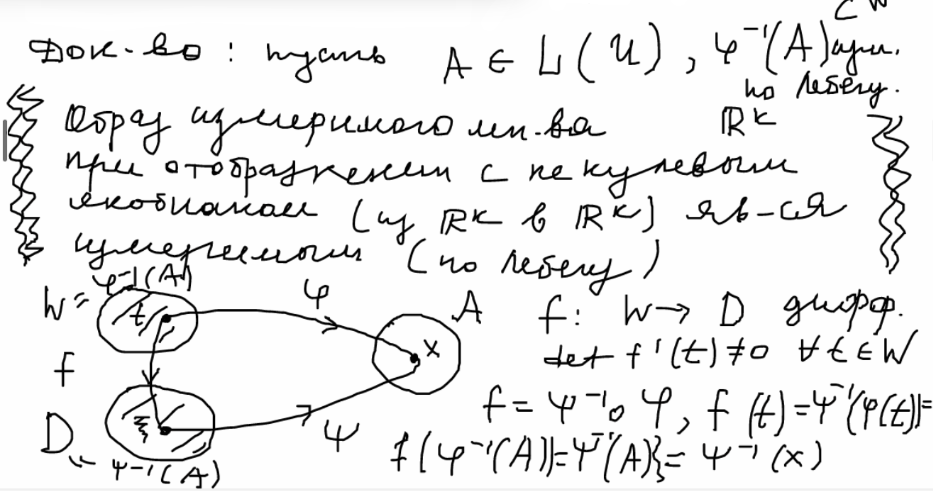 ⊂ W
Док-во: пусть A ∈ L(U), φ⁻¹(A) изм.
по Лебегу.
Образ измеримого мн-ва ℝᵏ
при отображении с ненулевым
якобианом (из ℝᵏ в ℝᵏ) яв-ся
измеримым (по Лебегу)
φ⁻¹(A)
W = t φ A f: W → D диффф.
x det f'(t) ≠ 0 ∀ t ∈ W
f
f = ψ⁻¹∘φ, f(t) = ψ⁻¹(φ(t)) =
D ξ ψ f(φ⁻¹(A)) = ψ⁻¹(A)} = ψ⁻¹(x)
ψ⁻¹(A)